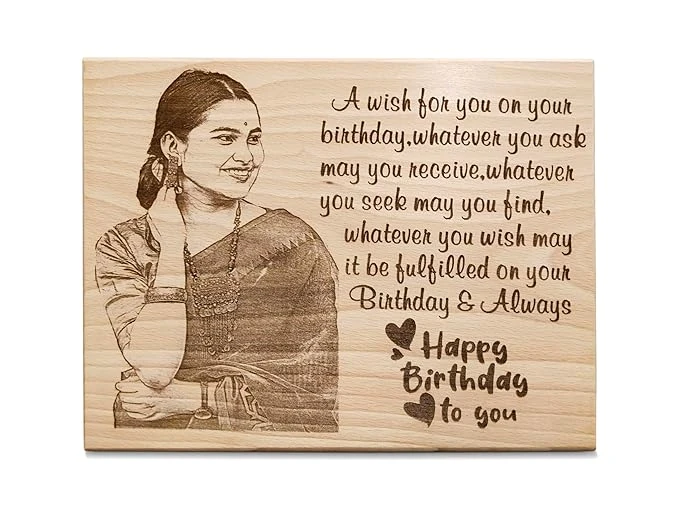 A wish for you on your
birthday,whatever you ask
may you receive,whatever
you seek may you find,
whatever you wish may
it be fulfilled on your
Birthday & Always
Happy
Birthday
to you